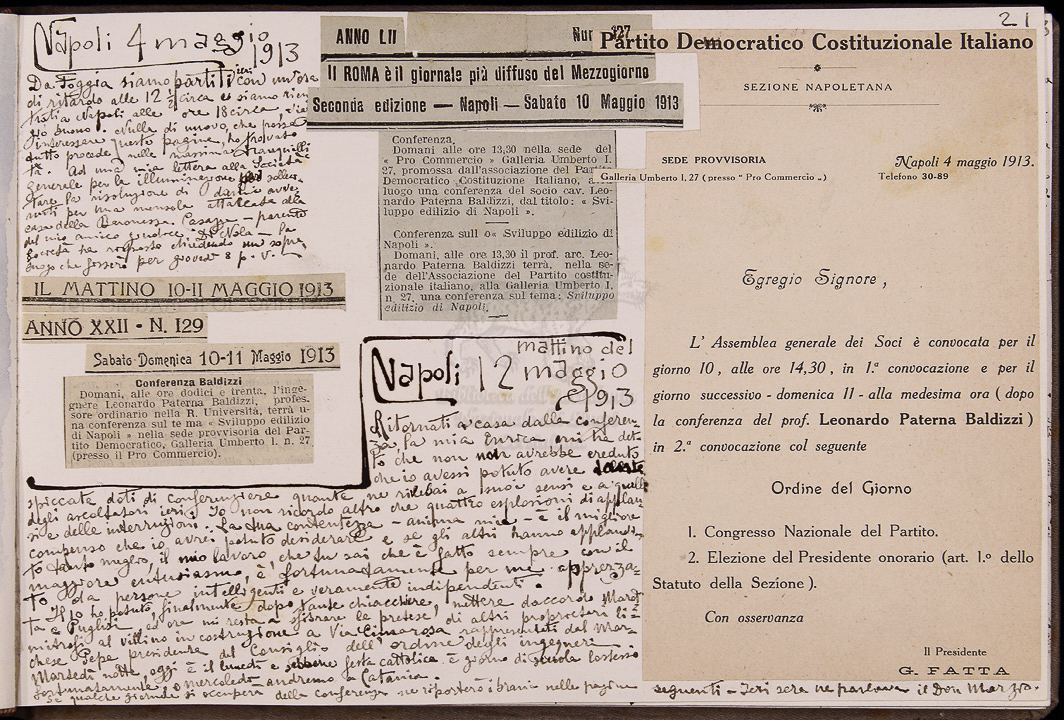 21
Napoli 4 maggio 1913
Da Foggia siamo partiti ieri con un'ora
di ritardo alle 12 ½ circa e siamo rien
trati a Napoli alle ore 18 circa, viag
gio buono. Nulla di nuovo, che possa
interessare queste pagine, ho trovato
tutto procede nella massima tranquilli
tà. Ad una mia lettera alla Società
Generale per la illuminazione per solleci
tare la risoluzione di danni avve
nuti per una mensola attaccata alla
casa della Baronessa Casapu - parente
del mio amico De Nola - la
Società ha risposto chiedendo un sopra
luogo che fisserò per giovedì 8 p. v.
IL MATTINO 10-11 MAGGIO 1913
ANNO XXII - N. 129
Sabato-Domenica 10-11 Maggio 1913
Conferenza Baldizzi
Domani, alle ore dodici e trenta, l'inge-
gnere Leonardo Paterna Baldizzi, profes-
sore ordinario nella R. Università, terrà u-
na conferenza sul te ma « Sviluppo edilizio
di Napoli » nella sede provvisoria del Par-
tito Democratico, Galleria Umberto I. n. 27
(presso il Pro Commercio).
ANNO LII Num 127
Il ROMA è il giornale più diffuso del Mezzogiorno
Seconda edizione — Napoli — Sabato 10 Maggio 1913
Conferenza.
Domani alle ore 13,30 nella sede del
« Pro Commercio » Galleria Umberto I.
27, promossa dall'associazione del Partito
Democratico Costituzione Italiano, avrà
luogo una conferenza del socio cav. Leo-
nardo Paterna Baldizzi, dal titolo: « Svi-
luppo edilizio di Napoli ».
Conferenza sull o« Sviluppo edilizio di
Napoli ».
Domani, alle ore 13,30 il prof. arc. Leo-
nardo Paterna Baldizzi terrà, nella se-
de dell'Associazione del Partito costitu-
zionale italiano, alla Galleria Umberto I,
n. 27, una conferenza sul tema: Sviluppo
edilizio di Napoli.
Partito Democratico Costituzionale Italiano
SEZIONE NAPOLETANA
SEDE PROVVISORIA
Galleria Umberto I, 27 (presso " Pro Commercio „)
Napoli 4 maggio 1913.
Telefono 30-89
Egregio Signore,
L' Assemblea generale dei Soci è convocata per il
giorno 10, alle ore 14,30, in 1.ª convocazione e per il
giorno successivo - domenica 11 - alla medesima ora ( dopo
la conferenza del prof. Leonardo Paterna Baldizzi )
in 2.ª convocazione col seguente
Ordine del Giorno
1. Congresso Nazionale del Partito.
2. Elezione del Presidente onorario (art. 1.º dello
Statuto della Sezione ).
Con osservanza
Il Presidente
G. FATTA
Napoli 12 mattino del maggio 1913
Ritornati a casa dalla conferen-
za, la mia Enrica mi ha det
to che non avrebbe creduto
che io avessi potuto avere
spiccate doti di conferenziere quante ne rilevai a suoi sensi e a quelli
degli ascoltatori ieri. Io non ricordo altro che quattro esplosioni di applau
si e delle interruzioni. La tua contentezza - anima mia - è il migliore
compenso che io avrei potuto desiderare e se gli altri hanno applaudi
to tanto meglio, il mio lavoro, che tu sai che è fatto sempre con il
maggiore entusiasmo, è, fortunatamente per me, apprezza-
to da persone intelligenti e veramente indipendenti.
Il 10 ho potuto, finalmente, dopo tante chiacchiere, mettere d'accordo Marot
ta e Puglisi ed ora mi resta a sfibrare le pretese di altri proprietari li
mitrofi al villino in costruzione a Via Cimarosa rappresentati dal Mar-
chese Pepe, presidente del Consiglio dell'ordine degli ingegneri.
Martedì notte, oggi è il lunedì e sebbene festa cattolica è giorno di scuola lo stesso
fortunatamente, o mercoledì andremo a Catania.
Se qualche giornale si occuperà della conferenza ne riporterò i brani nelle pagine
seguenti - Ieri sera ne parlava il Don Marzio.